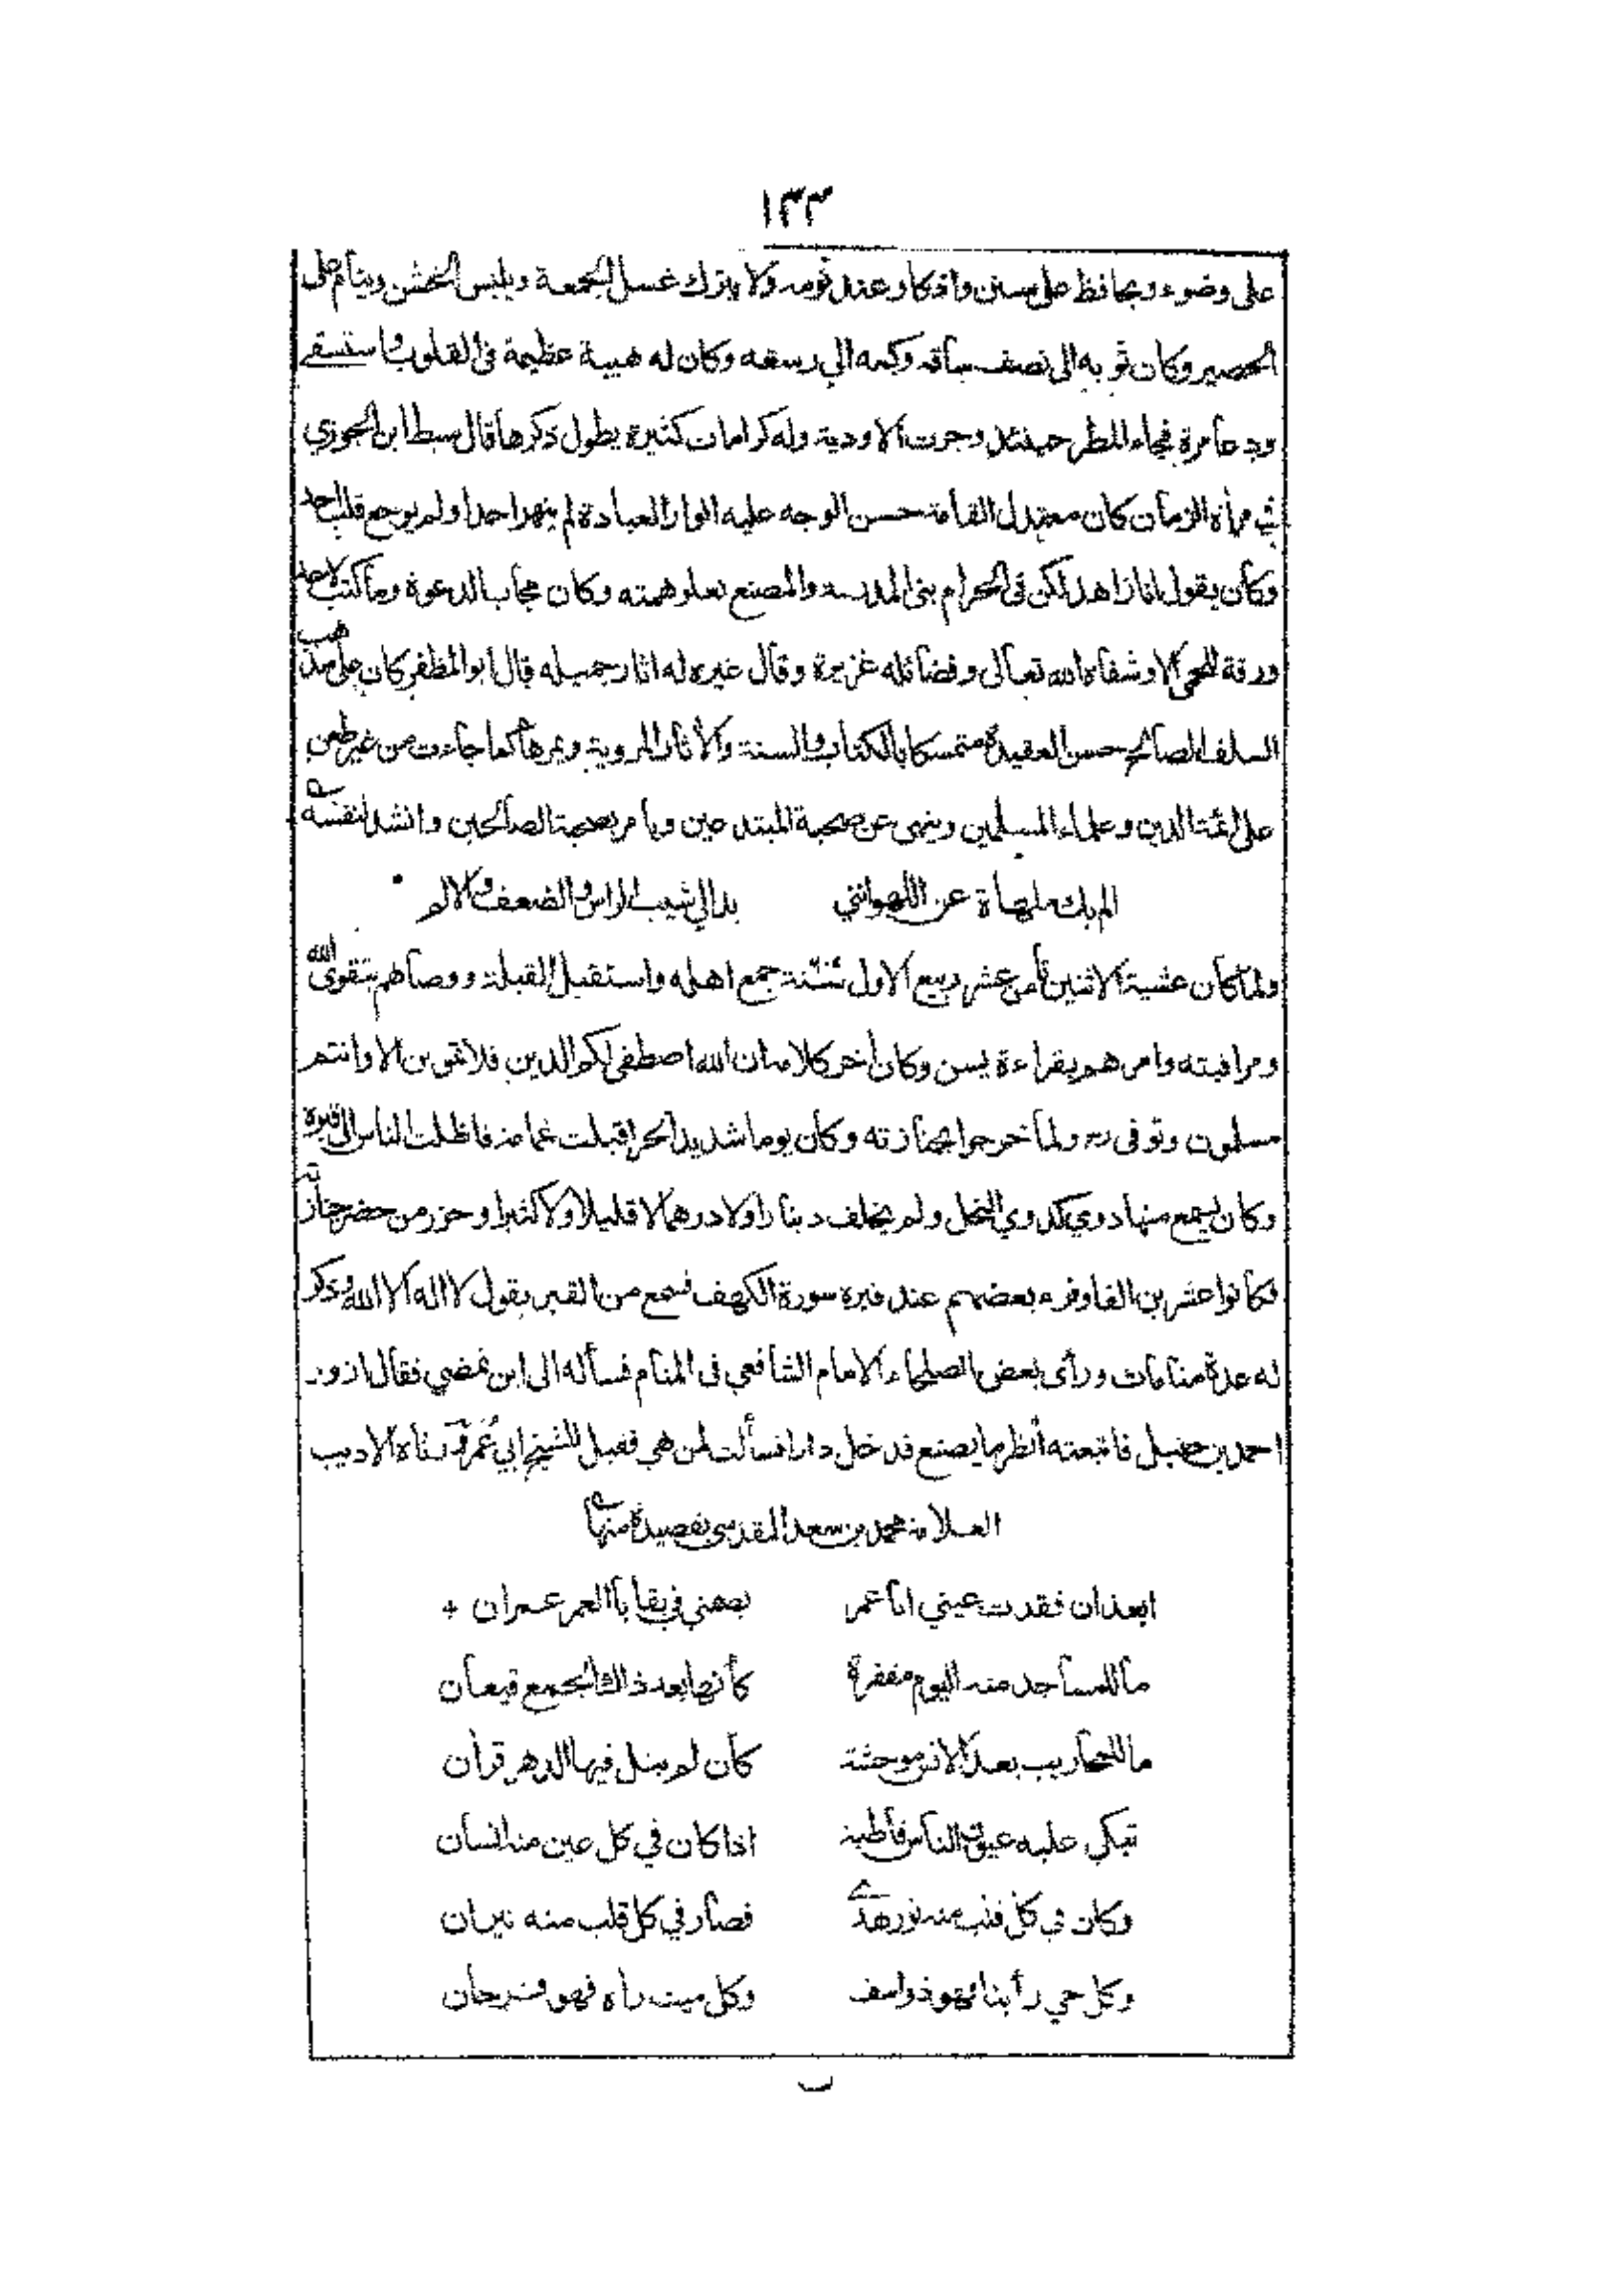 ١٣٣
على وضوء ويحافظ على سنن واذكار عند نومه ولا يترك غسل الجمعة ويلبس الخشن وينام على
الحصير وكان ثوبه الى نصف ساقه وكمه الي رسغه وكان له هيبة عظيمة في القلوب واستسقے
ودعا مرة فجاء المطر حينئذ وجرت الاودية وله كرامات كثيرة يطول ذكرها قال سبط ابن الجوزي
في مرأة الزمان كان معتدل القامة حسن الوجه عليه انوار العبادة لم ينهر احدا ولم يوجع قلب احد
وكان يقول انا زاهد لكن في الحرام بنى المدرسة والمصنع بعلو همته وكان مجاب الدعوة وما كتب لاحد
ورقة للحمى الا وشفاه الله تعالى وفضائله غزيرة وقال غيره له اثار جميله قال ابو المظفر كان على مذهب
السلف الصالح حسن العقيدة متمسكا بالكتاب والسنة والأثار المروية ويمرها كما جاءت من غير طعن
على ائمة الدين وعلماء المسلمين وينهى عن صحبة المبتدعين ويأمر بصحبة الصالحين وانشد لنفسه
الم يك ملهاة عن اللهو انني بدا لي شيب الراس والضعف والالم
ولما كان عشية الاثنين ثامن عشر ربيع الاول جمع اهله واستقبل القبلة ووصاهم بتقوى الله
ومراقبته وامرهم بقراءة يسن وكان أخر كلامه ان الله اصطفى لكم الدين فلا تموتن الا وانتم
مسلمون وتوفى رح ولما خرجوا بجنازته وكان يوما شديد الحر اقبلت غمامة فاظلت الناس الى قبره
وكان يسمع منها دوي كدوي النحل ولم يخلف دينارا ولا درهما لا قليلا ولا كثيرا وحزر من حضر جنازته
فكانوا عشرين الفا وقرء بعضهم عند قبره سورة الكهف فسمع من القبر يقول لا اله الا الله وذكر
له عدة منامات ورأى بعض الصلحاء الامام الشافعي في المنام فسأله الى اين تمضي فقال ازور
احمد بن حنبل فاتبعته أنظر ما يصنع فدخل دارا فسألت لمن هي فقيل للشيخ ابي عمر وقد رثاه الاديب
العلامة محمد بن سعد المقدسي بقصيدة منها
ابعد ان فقدت عيني ابا عمر يضمني في بقايا العمر عمران +
ما للمساجد منه اليوم مقفرة كأنها بعد ذاك الجمع قيعان
ما للمحاريب بعد الانس موحشة كأن لم يتل فيها الدهر قرأن
تبكي عليه عيون الناس قاطبة اذا كان في كل عين منه انسان
وكان في كل قلب منه نور هدے فصار في كل قلب منه نيران
وكل حي رأينا فهو ذو اسف وكل ميت رأه فهو فرحان